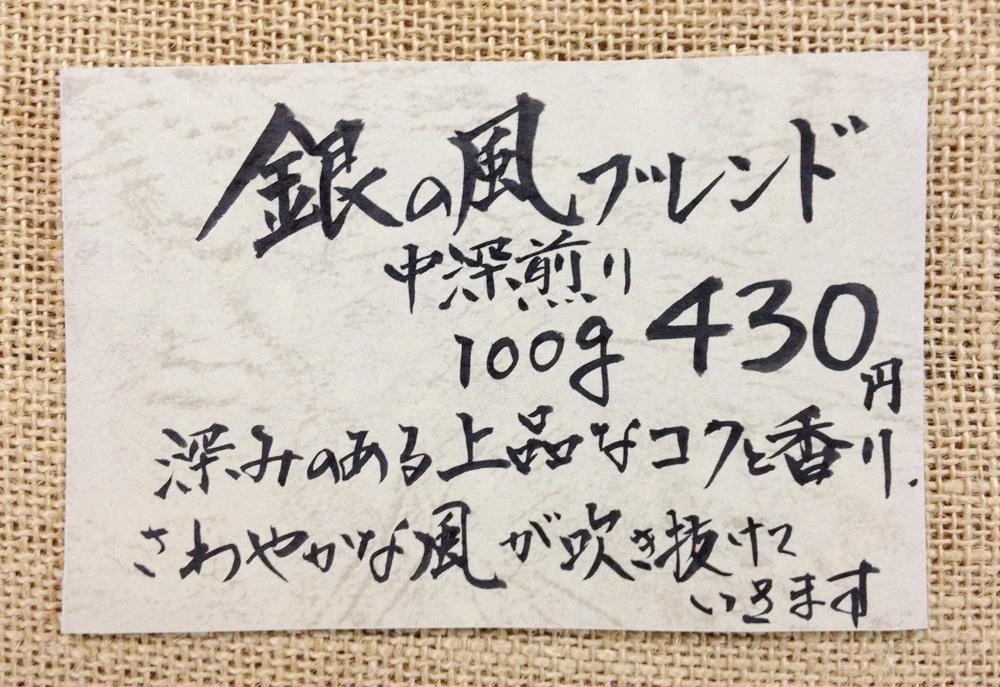 銀の風ブレンド
中深煎り
100g 430円
深みのある上品なコクと香り.
さわやかな風が吹き抜けて
いきます